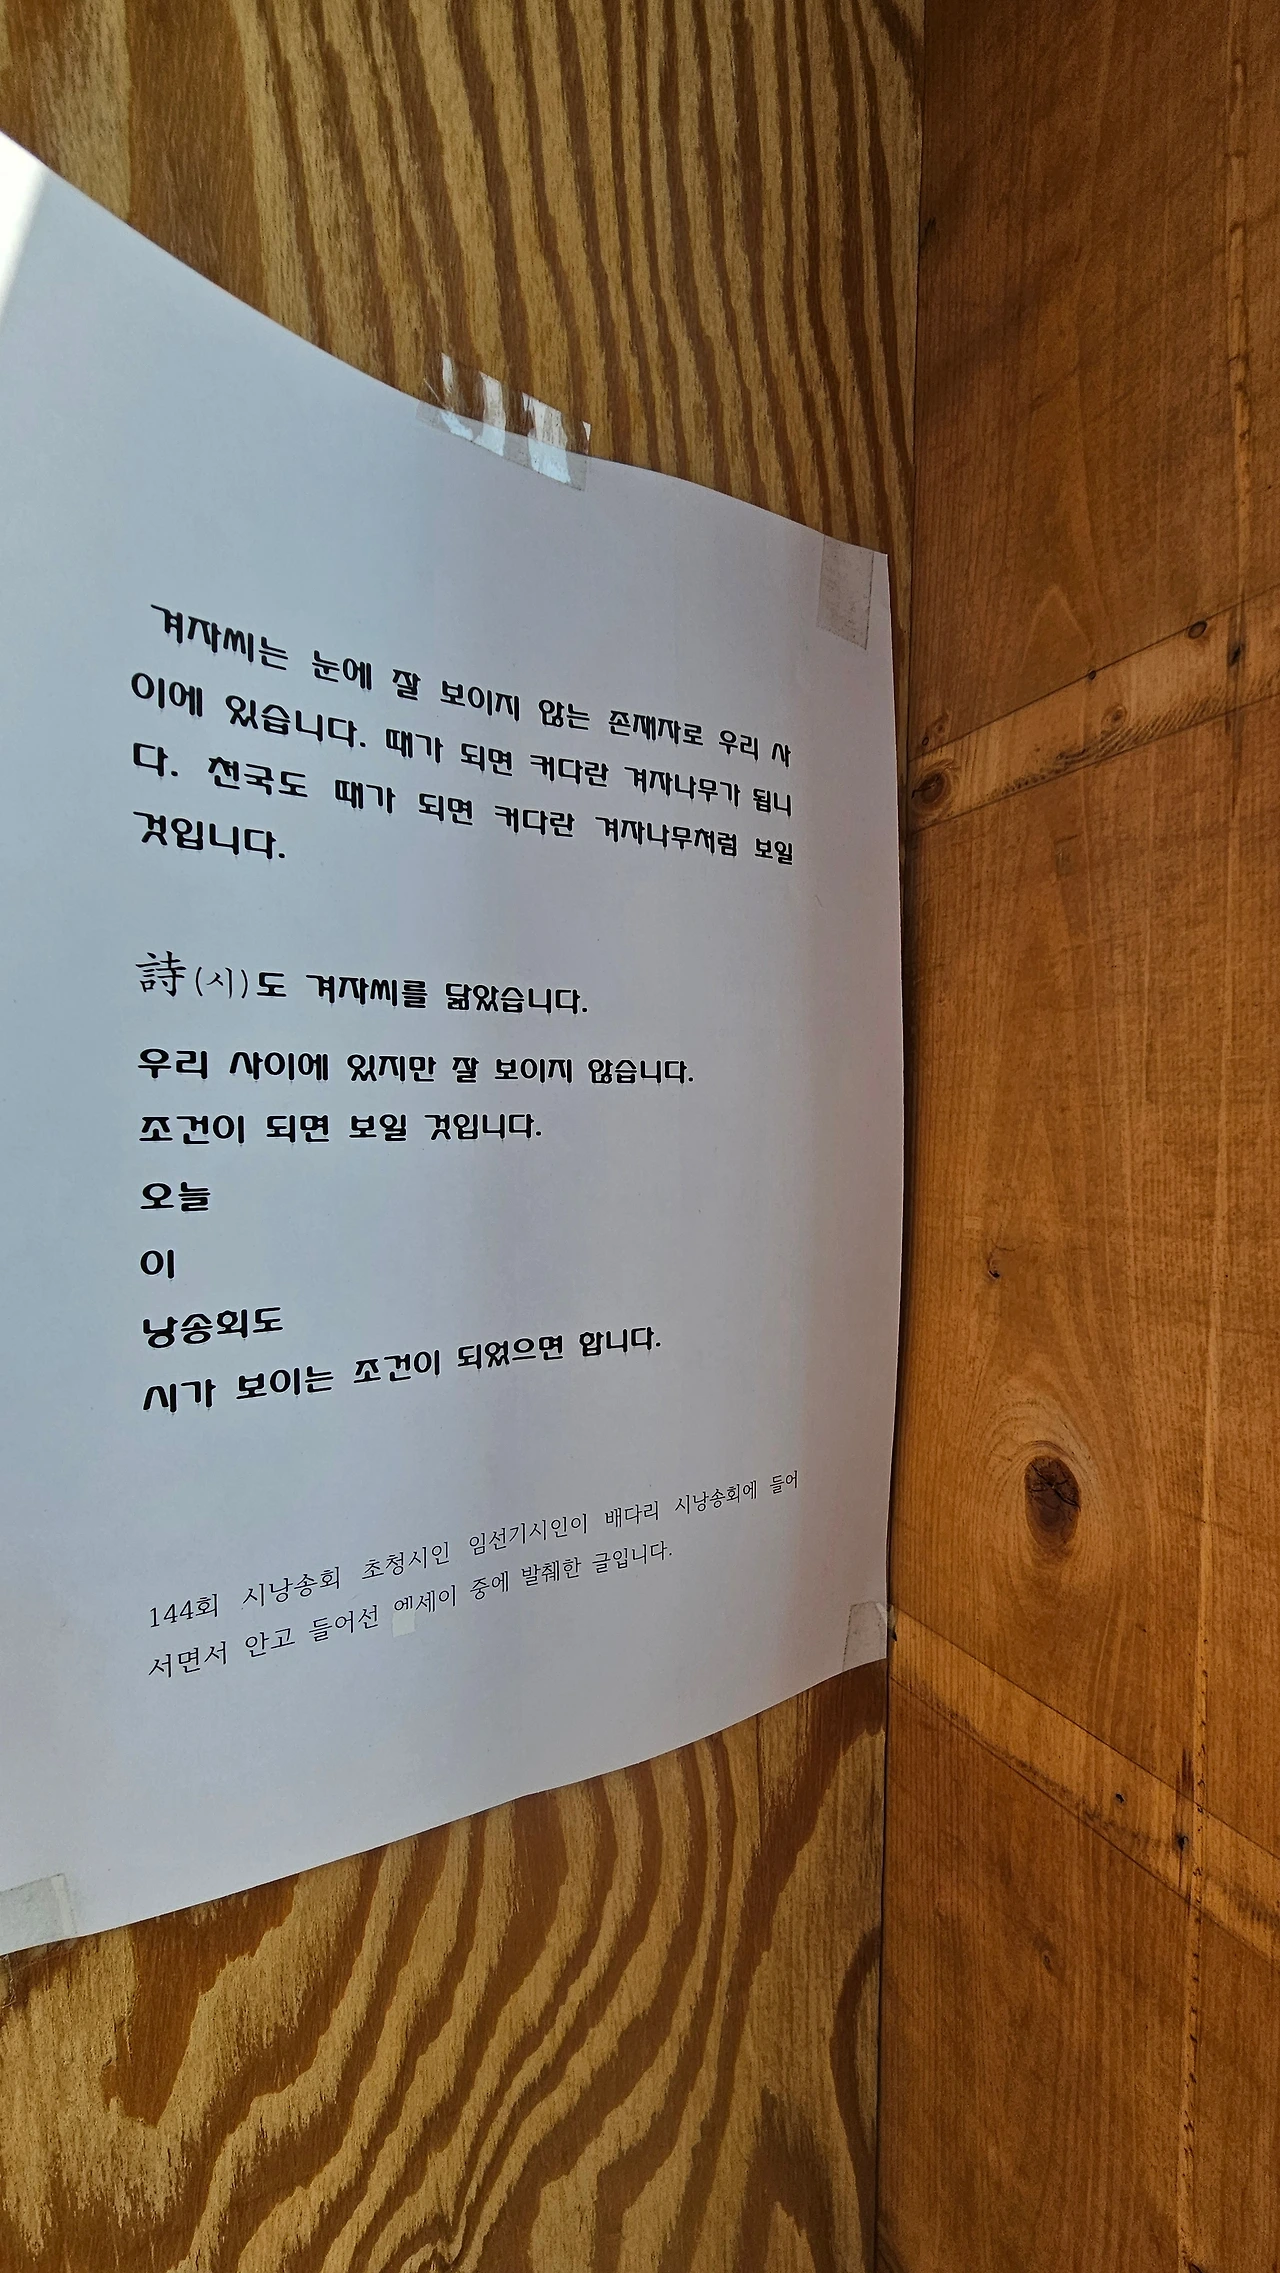 겨자씨는 눈에 잘 보이지 않는 존재자로 우리 사
이에 있습니다. 때가 되면 커다란 겨자나무가 됩니
다. 천국도 때가 되면 커다란 겨자나무처럼 보일
것입니다.
詩(시)도 겨자씨를 닮았습니다.
우리 사이에 있지만 잘 보이지 않습니다.
조건이 되면 보일 것입니다.
오늘
이
낭송회도
시가 보이는 조건이 되었으면 합니다.
144회 시낭송회 초청시인 임선기시인이 배다리 시낭송회에 들어
서면서 안고 들어선 에세이 중에 발췌한 글입니다.